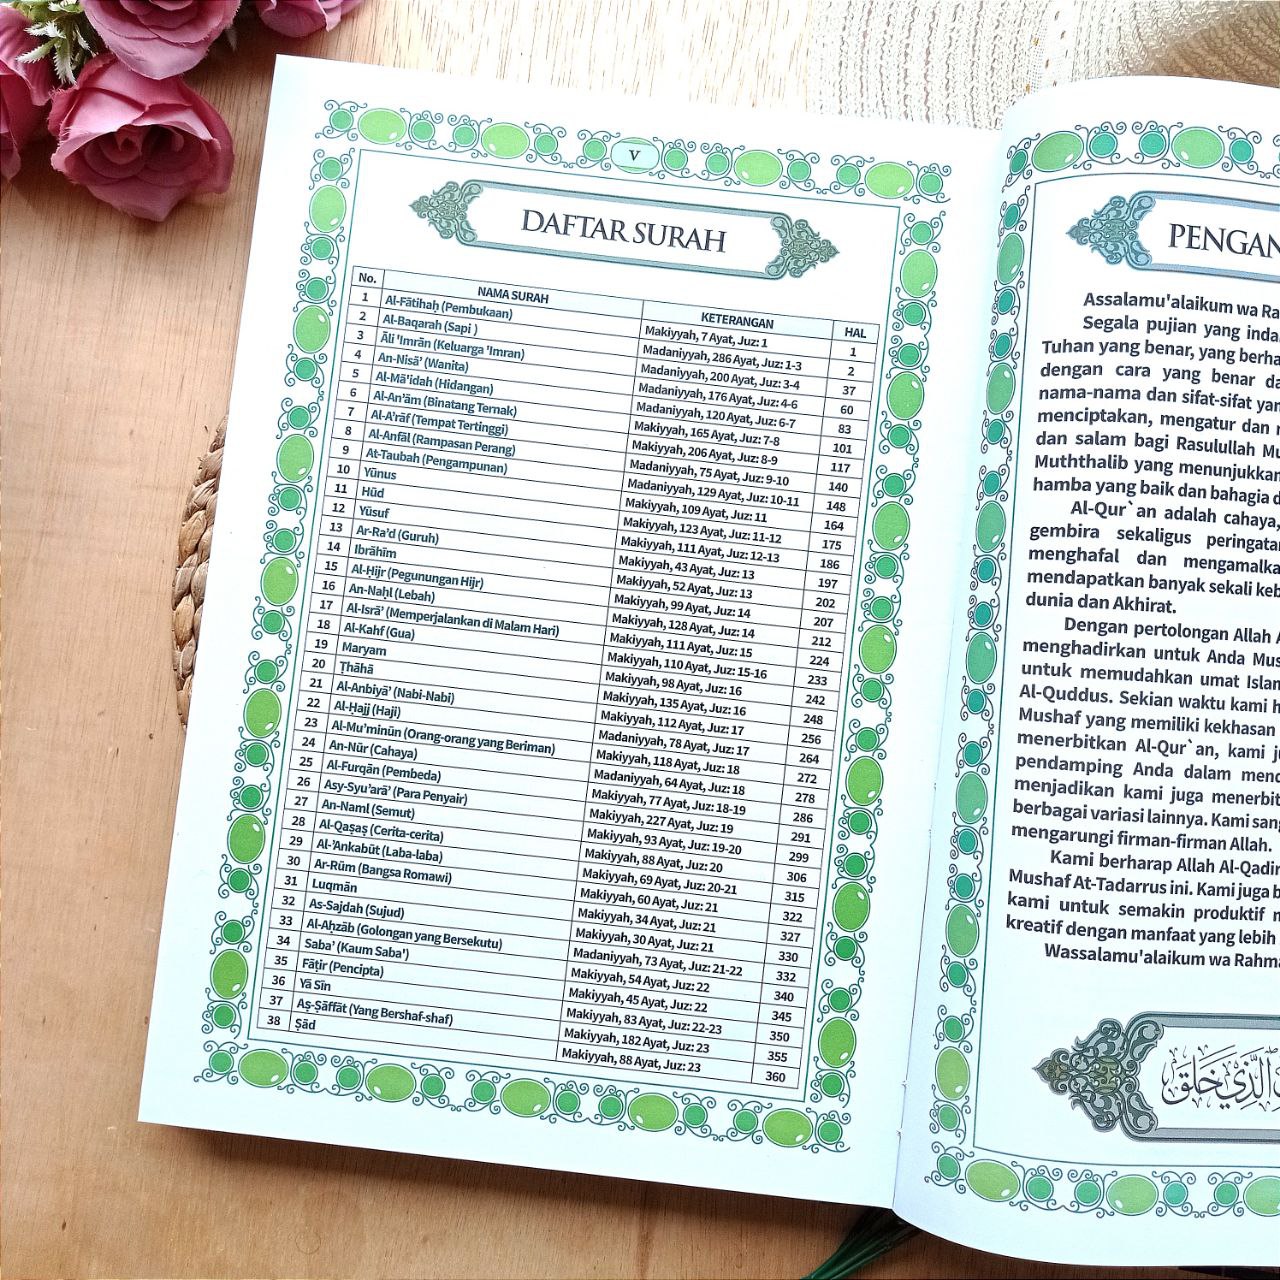 V
DAFTAR SURAH
No. NAMA SURAH KETERANGAN HAL
1 Al-Fātiḥaḥ (Pembukaan) Makiyyah, 7 Ayat, Juz: 1 1
2 Al-Baqarah (Sapi ) Madaniyyah, 286 Ayat, Juz: 1-3 2
3 Āli 'Imrān (Keluarga 'Imran) Madaniyyah, 200 Ayat, Juz: 3-4 37
4 An-Nisā' (Wanita) Madaniyyah, 176 Ayat, Juz: 4-6 60
5 Al-Mā'idah (Hidangan) Madaniyyah, 120 Ayat, Juz: 6-7 83
6 Al-An'ām (Binatang Ternak) Makiyyah, 165 Ayat, Juz: 7-8 101
7 Al-A'rāf (Tempat Tertinggi) Makiyyah, 206 Ayat, Juz: 8-9 117
8 Al-Anfāl (Rampasan Perang) Madaniyyah, 75 Ayat, Juz: 9-10 140
9 At-Taubah (Pengampunan) Madaniyyah, 129 Ayat, Juz: 10-11 148
10 Yūnus Makiyyah, 109 Ayat, Juz: 11 164
11 Hūd Makiyyah, 123 Ayat, Juz: 11-12 175
12 Yūsuf Makiyyah, 111 Ayat, Juz: 12-13 186
13 Ar-Ra'd (Guruh) Makiyyah, 43 Ayat, Juz: 13 197
14 Ibrāhīm Makiyyah, 52 Ayat, Juz: 13 202
15 Al-Ḥijr (Pegunungan Hijr) Makiyyah, 99 Ayat, Juz: 14 207
16 An-Naḥl (Lebah) Makiyyah, 128 Ayat, Juz: 14 212
17 Al-Isrā' (Memperjalankan di Malam Hari) Makiyyah, 111 Ayat, Juz: 15 224
18 Al-Kahf (Gua) Makiyyah, 110 Ayat, Juz: 15-16 233
19 Maryam Makiyyah, 98 Ayat, Juz: 16 242
20 Ṭhāhā Makiyyah, 135 Ayat, Juz: 16 248
21 Al-Anbiyā' (Nabi-Nabi) Makiyyah, 112 Ayat, Juz: 17 256
22 Al-Ḥajj (Haji) Madaniyyah, 78 Ayat, Juz: 17 264
23 Al-Mu'minūn (Orang-orang yang Beriman) Makiyyah, 118 Ayat, Juz: 18 272
24 An-Nūr (Cahaya) Madaniyyah, 64 Ayat, Juz: 18 278
25 Al-Furqān (Pembeda) Makiyyah, 77 Ayat, Juz: 18-19 286
26 Asy-Syu'arā' (Para Penyair) Makiyyah, 227 Ayat, Juz: 19 291
27 An-Naml (Semut) Makiyyah, 93 Ayat, Juz: 19-20 299
28 Al-Qaṣaṣ (Cerita-cerita) Makiyyah, 88 Ayat, Juz: 20 306
29 Al-'Ankabūt (Laba-laba) Makiyyah, 69 Ayat, Juz: 20-21 315
30 Ar-Rūm (Bangsa Romawi) Makiyyah, 60 Ayat, Juz: 21 322
31 Luqmān Makiyyah, 34 Ayat, Juz: 21 327
32 As-Sajdah (Sujud) Makiyyah, 30 Ayat, Juz: 21 330
33 Al-Aḥzāb (Golongan yang Bersekutu) Madaniyyah, 73 Ayat, Juz: 21-22 332
34 Saba' (Kaum Saba') Makiyyah, 54 Ayat, Juz: 22 340
35 Fāṭir (Pencipta) Makiyyah, 45 Ayat, Juz: 22 345
36 Yā Sīn Makiyyah, 83 Ayat, Juz: 22-23 350
37 Aṣ-Ṣāffāt (Yang Bershaf-shaf) Makiyyah, 182 Ayat, Juz: 23 355
38 Ṣād Makiyyah, 88 Ayat, Juz: 23 360
PENGAN
Assalamu'alaikum wa Ra
Segala pujian yang inda
Tuhan yang benar, yang berha
dengan cara yang benar da
nama-nama dan sifat-sifat yan
menciptakan, mengatur dan
dan salam bagi Rasulullah Mu
Muththalib yang menunjukkan
hamba yang baik dan bahagia d
Al-Qur`an adalah cahaya,
gembira sekaligus peringatan
menghafal dan mengamalka
mendapatkan banyak sekali keb
dunia dan Akhirat.
Dengan pertolongan Allah A
menghadirkan untuk Anda Mus
untuk memudahkan umat Islam
Al-Quddus. Sekian waktu kami h
Mushaf yang memiliki kekhasan
menerbitkan Al-Qur`an, kami ju
pendamping Anda dalam menc
menjadikan kami juga menerbit
berbagai variasi lainnya. Kami sang
mengarungi firman-firman Allah.
Kami berharap Allah Al-Qadir
Mushaf At-Tadarrus ini. Kami juga b
kami untuk semakin produktif m
kreatif dengan manfaat yang lebih
Wassalamu'alaikum wa Rahma
الَّذِي خَلَقَ